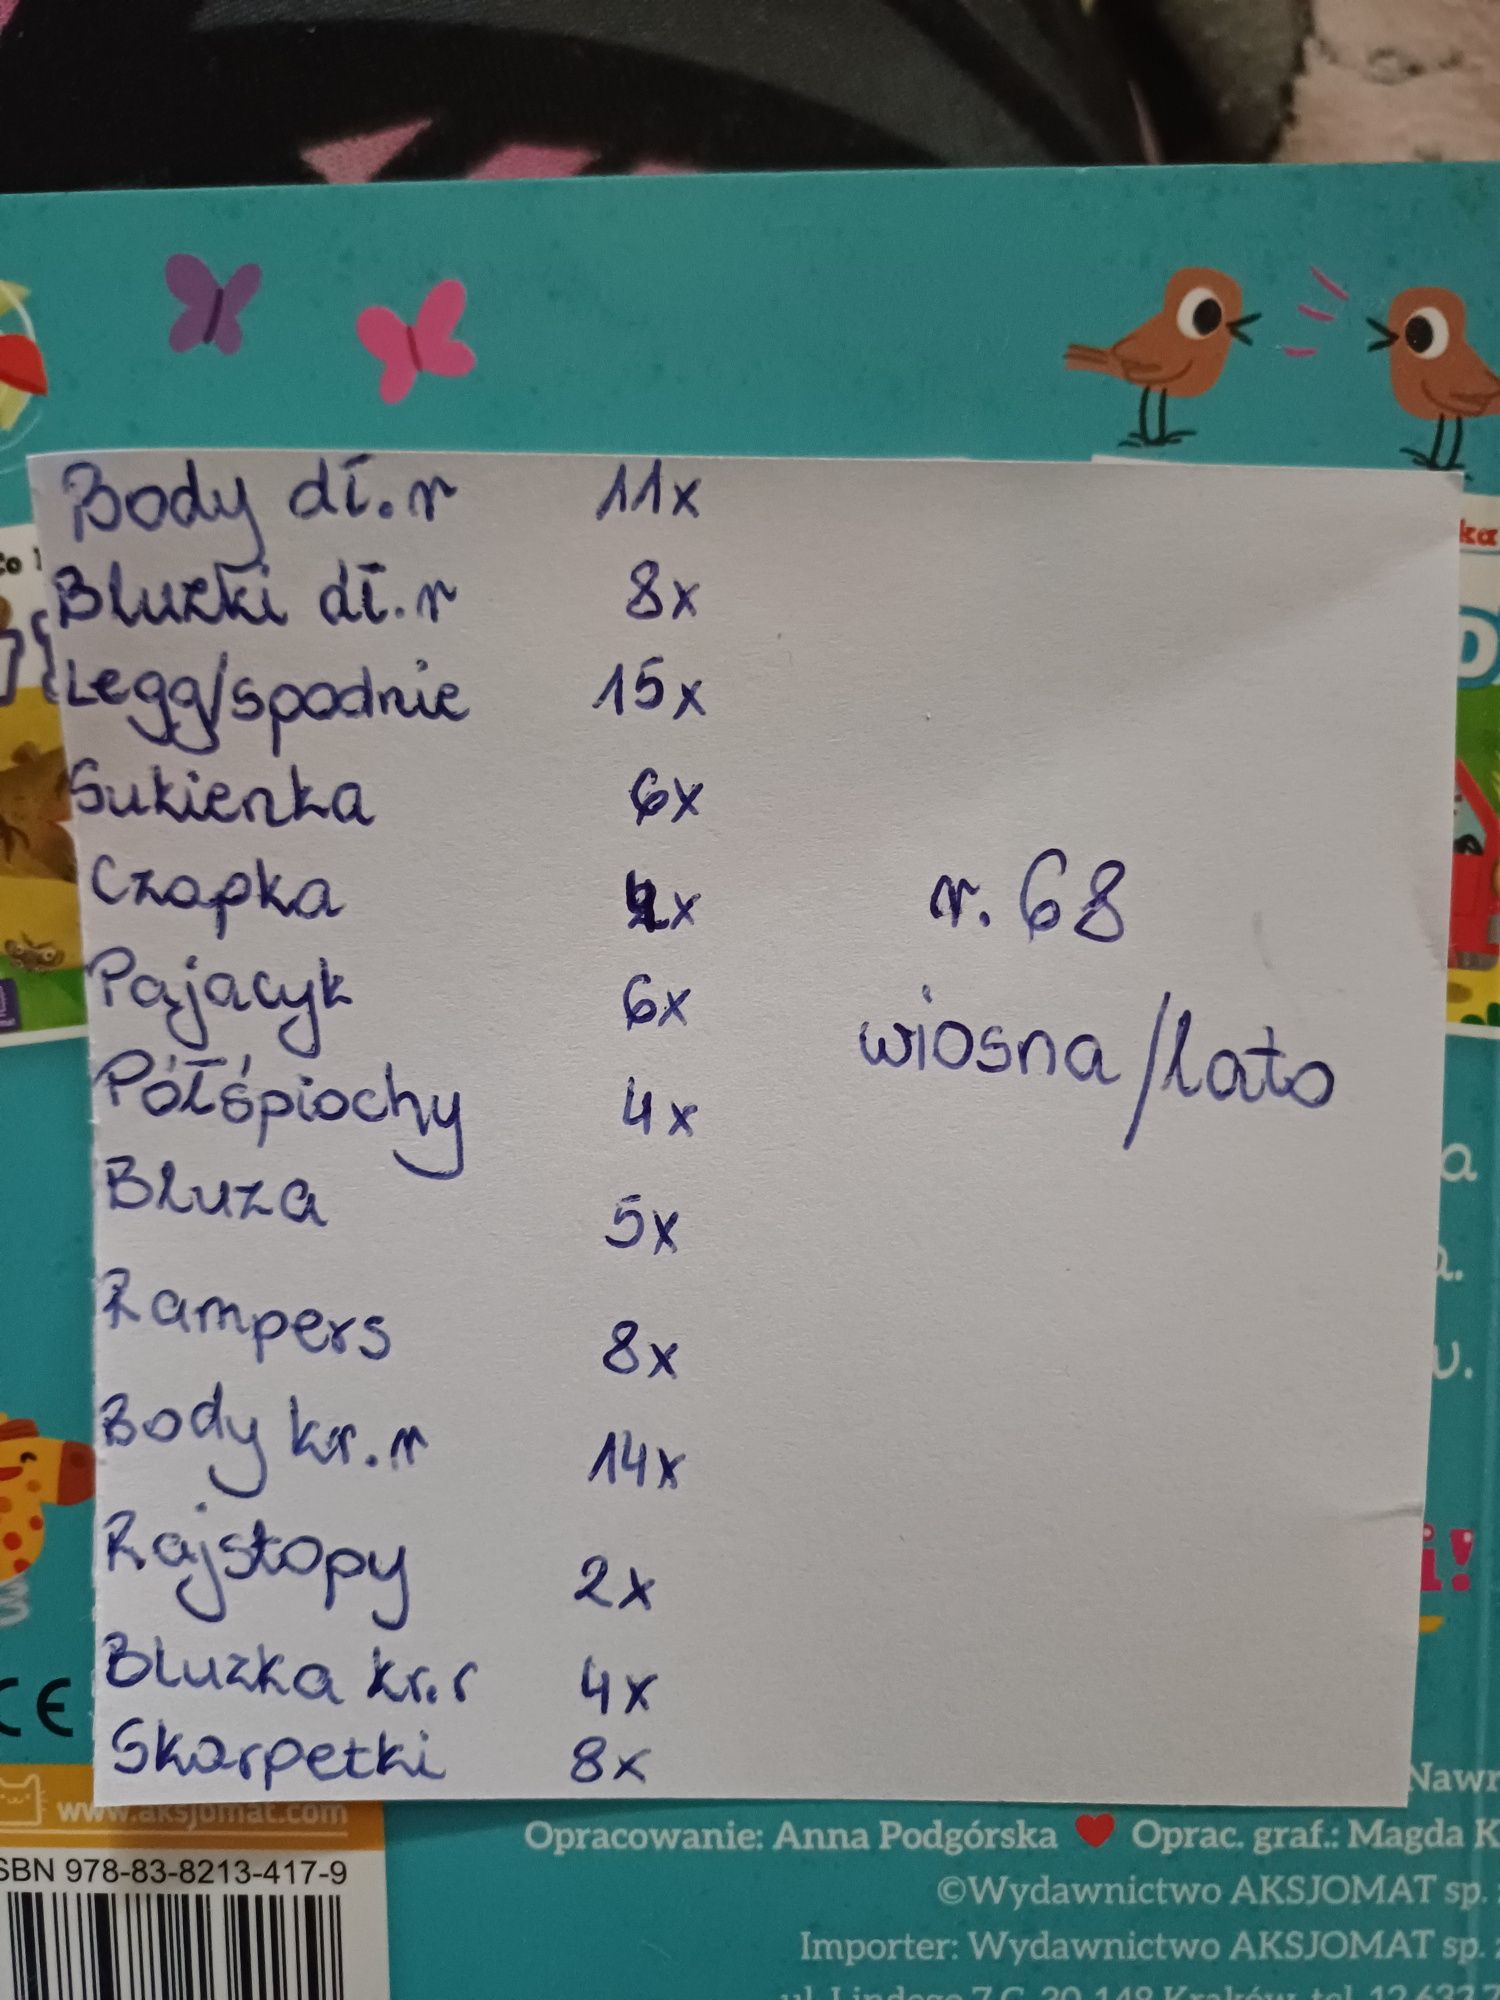 Body dł.r 11x
Bluzki dł.r 8x
Legg/spodnie 15x
Sukienka 6x
Czapka x
Pajacyk 6x
Półśpiochy 4x
Bluza 5x
Rampers 8x
Body kr.r 14x
Rajstopy 2x
Bluzka kr.r 4x
Skarpetki 8x
r. 68
wiosna/lato
ka
a
i!
CE
www.aksjomat.com
ISBN 978-83-8213-417-9
Opracowanie: Anna Podgórska ♥ Oprac. graf.: Magda K
©Wydawnictwo AKSJOMAT sp.
Importer: Wydawnictwo AKSJOMAT sp.